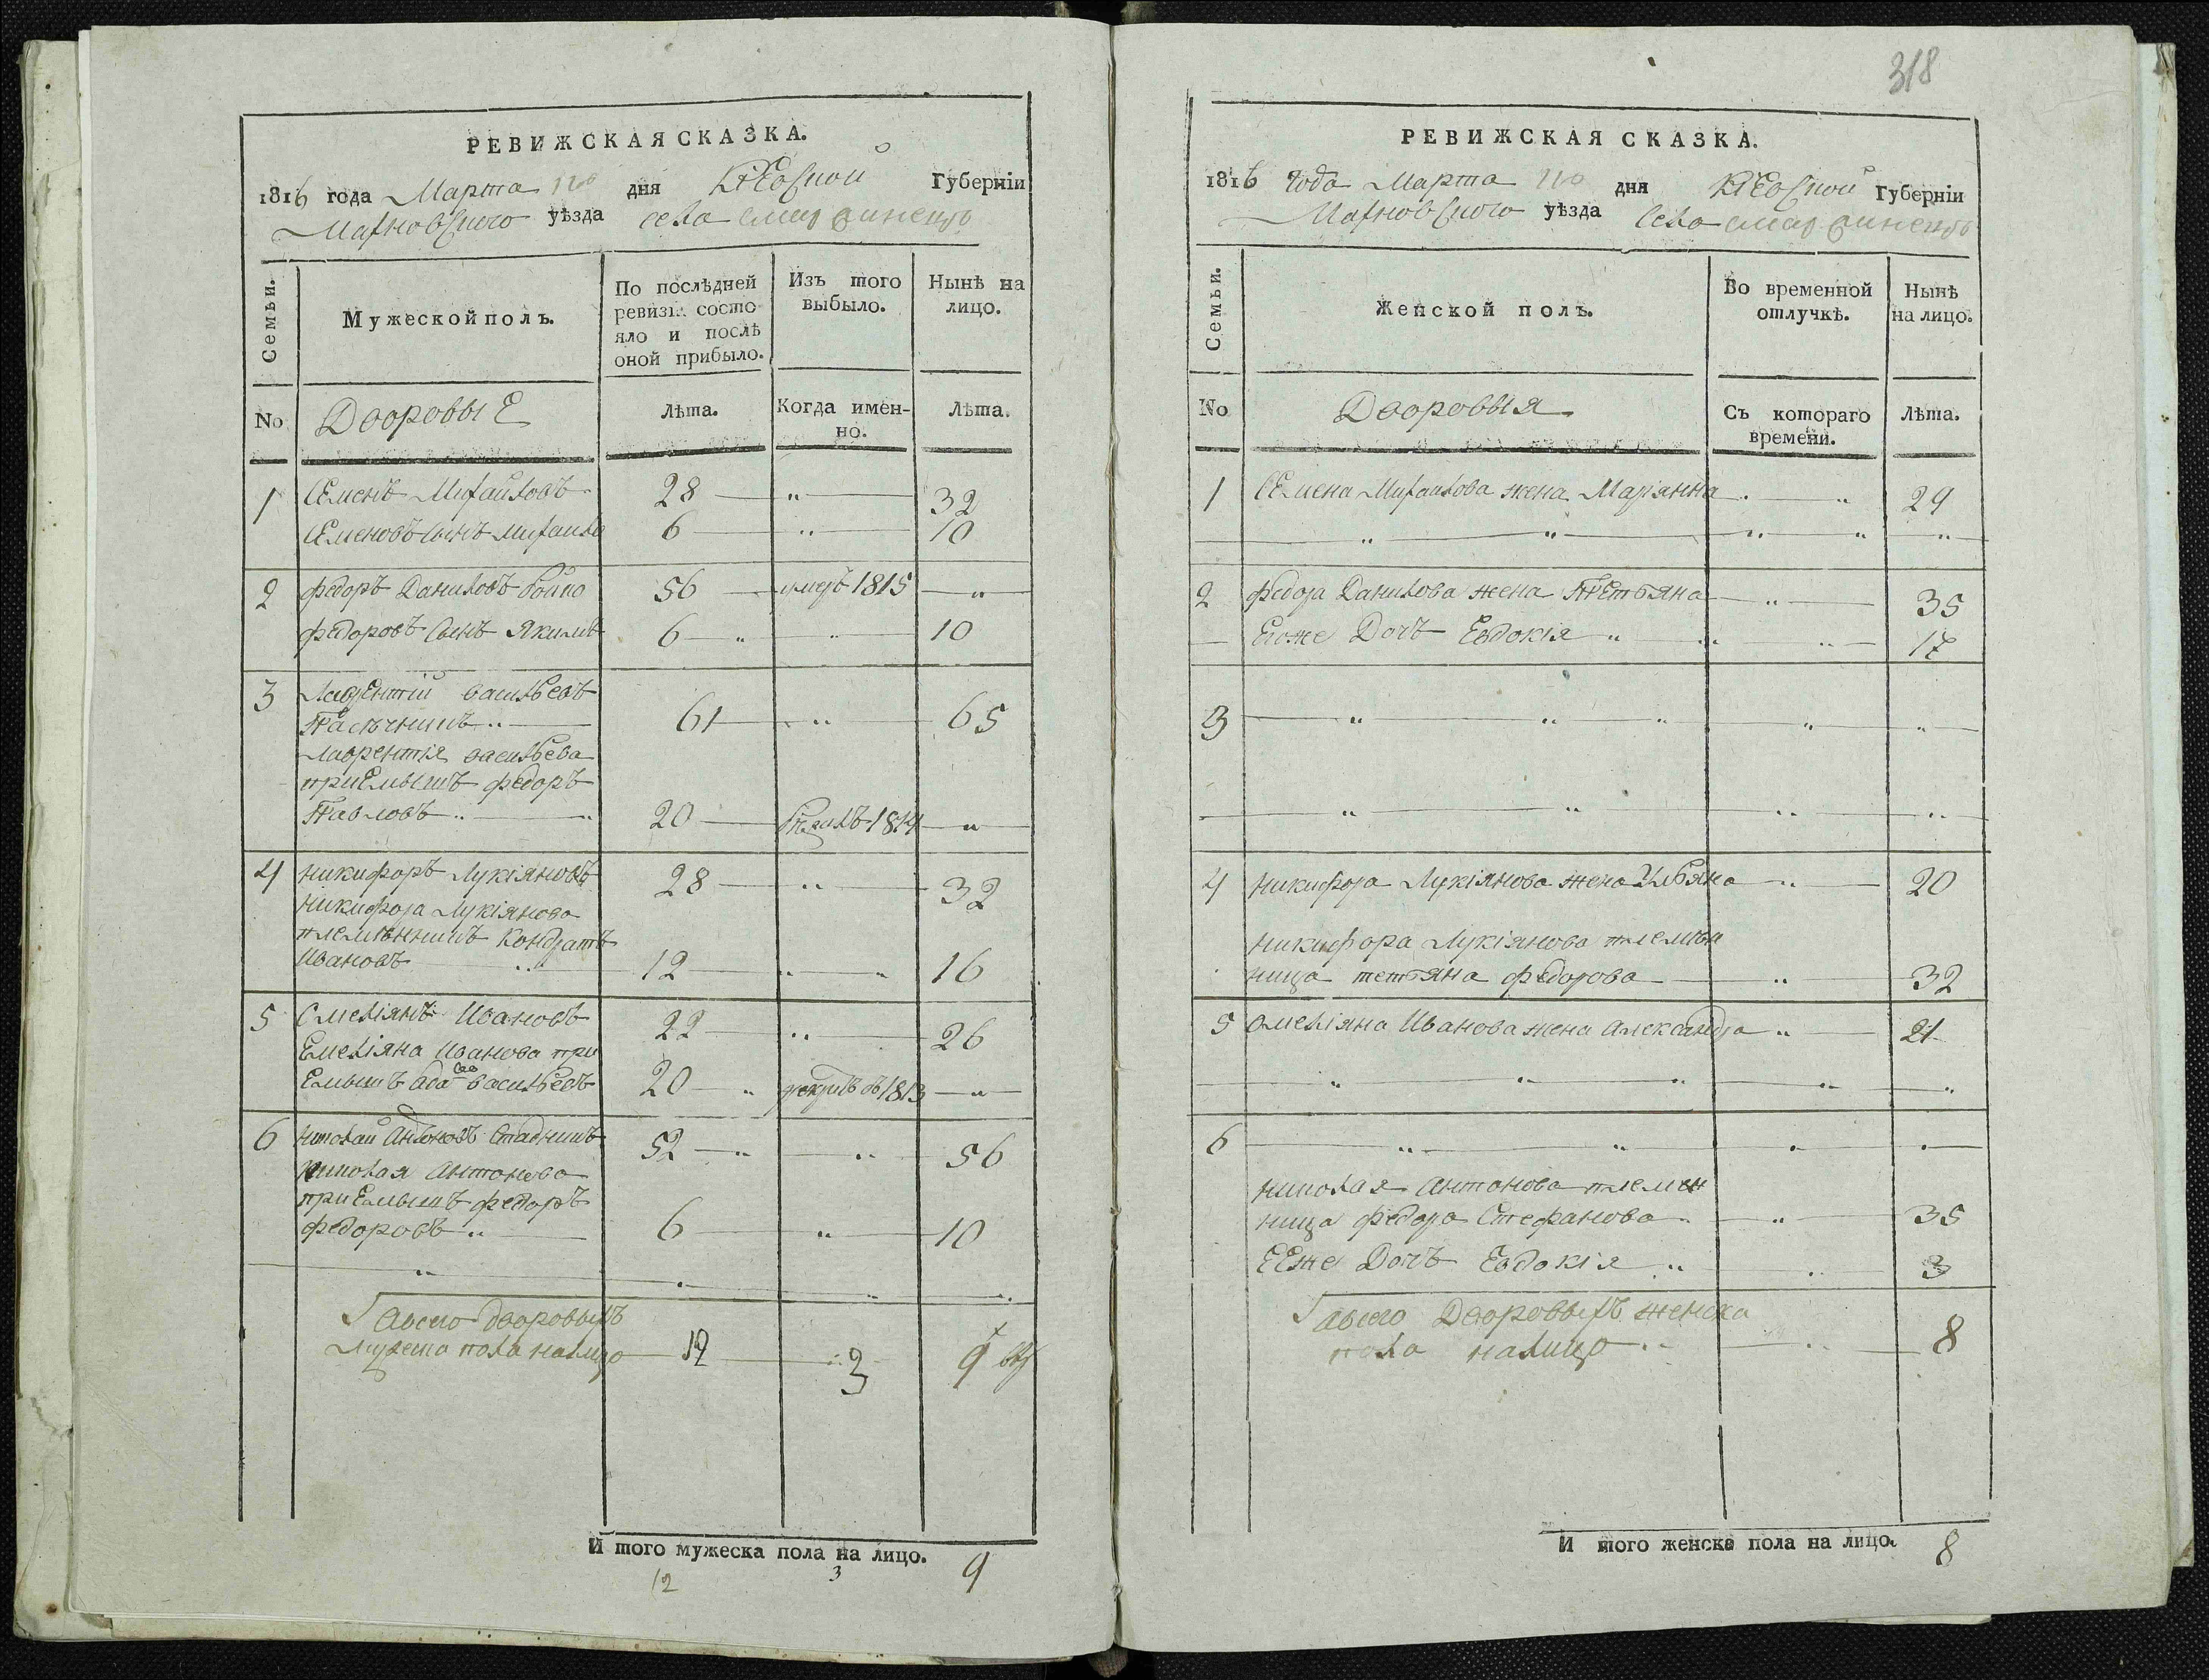 318
РЕВИЖСКАЯ СКАЗКА.
1816 года Марта дня Кіевской Губерніи
Махновского уѣзда села
Семьи.
Мужеской полъ.
По послѣдней
ревизіи состо
яло и послѣ
оной прибыло.
Изъ того
выбыло.
Нынѣ на
лицо.
No
Дворовые
Лѣта.
Когда имен-
но.
Лѣта.
1 Семенъ Михайловъ 28 " 32
Семеновъ сынъ Михайло 6 " 10
2 Федоръ Даниловъ Бойко 56 умеръ 1815 "
Федоровъ сынъ Якимъ 6 " " 10
3 Лаврентій Васильевъ
Пасѣчникъ " 61 " 65
Лаврентія Васильева
приемышъ Федоръ
Павловъ " " 20 1814 "
4 Никифоръ Лукіяновъ 28 " 32
Никифора Лукіянова
племѣнникъ Кондратъ
Ивановъ " 12 " " 16
5 Омеліянъ Ивановъ 22 " 26
Емеліяна Иванова при
емышъ Савва Васильевъ 20 " 1813 "
6 Николай Антоновъ Стадникъ 52 " " 56
Николая Антонова
приемышъ Федоръ
Федоровъ " 6 " 10
" " " "
Всего дворовыхъ
мужеска пола налицо 12 3 9
И того мужеска пола на лицо. 9
12 3
РЕВИЖСКАЯ СКАЗКА.
1816 года Марта дня Кіевской Губерніи
Махновского уѣзда села
Семьи.
Женской полъ.
Во временной
отлучкѣ.
Нынѣ
на лицо.
No
Дворовыя
Съ котораго
времени.
Лѣта.
1 Семена Михайлова жена Маріянна " " 29
" " " " "
2 Федора Данилова жена Тетьяна " 35
Егоже дочъ Евдокія " " " 17
3 " " " " "
" " " "
4 Никифора Лукіянова жена Ульяна " 20
Никифора Лукіянова племѣн
ница тетьяна Федорова " 32
5 Омеліяна Иванова жена Александра " 21
" " " " "
6 " " " "
Николая Антонова племен
ница Федора Стефанова " " 35
Еежe дочъ Евдокія " " 3
Всего дворовыхъ женска
пола налицо " " 8
И того женска пола на лицо. 8